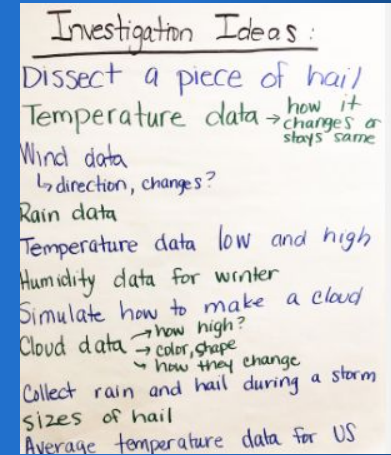 Investigation Ideas:
Dissect a piece of hail
Temperature data → how it
changes or
stays same
Wind data
↳ direction, changes?
Rain data
Temperature data low and high
Humidity data for winter
Simulate how to make a cloud
Cloud data → how high?
→ color, shape
→ how they change
Collect rain and hail during a storm
sizes of hail
Average temperature data for US